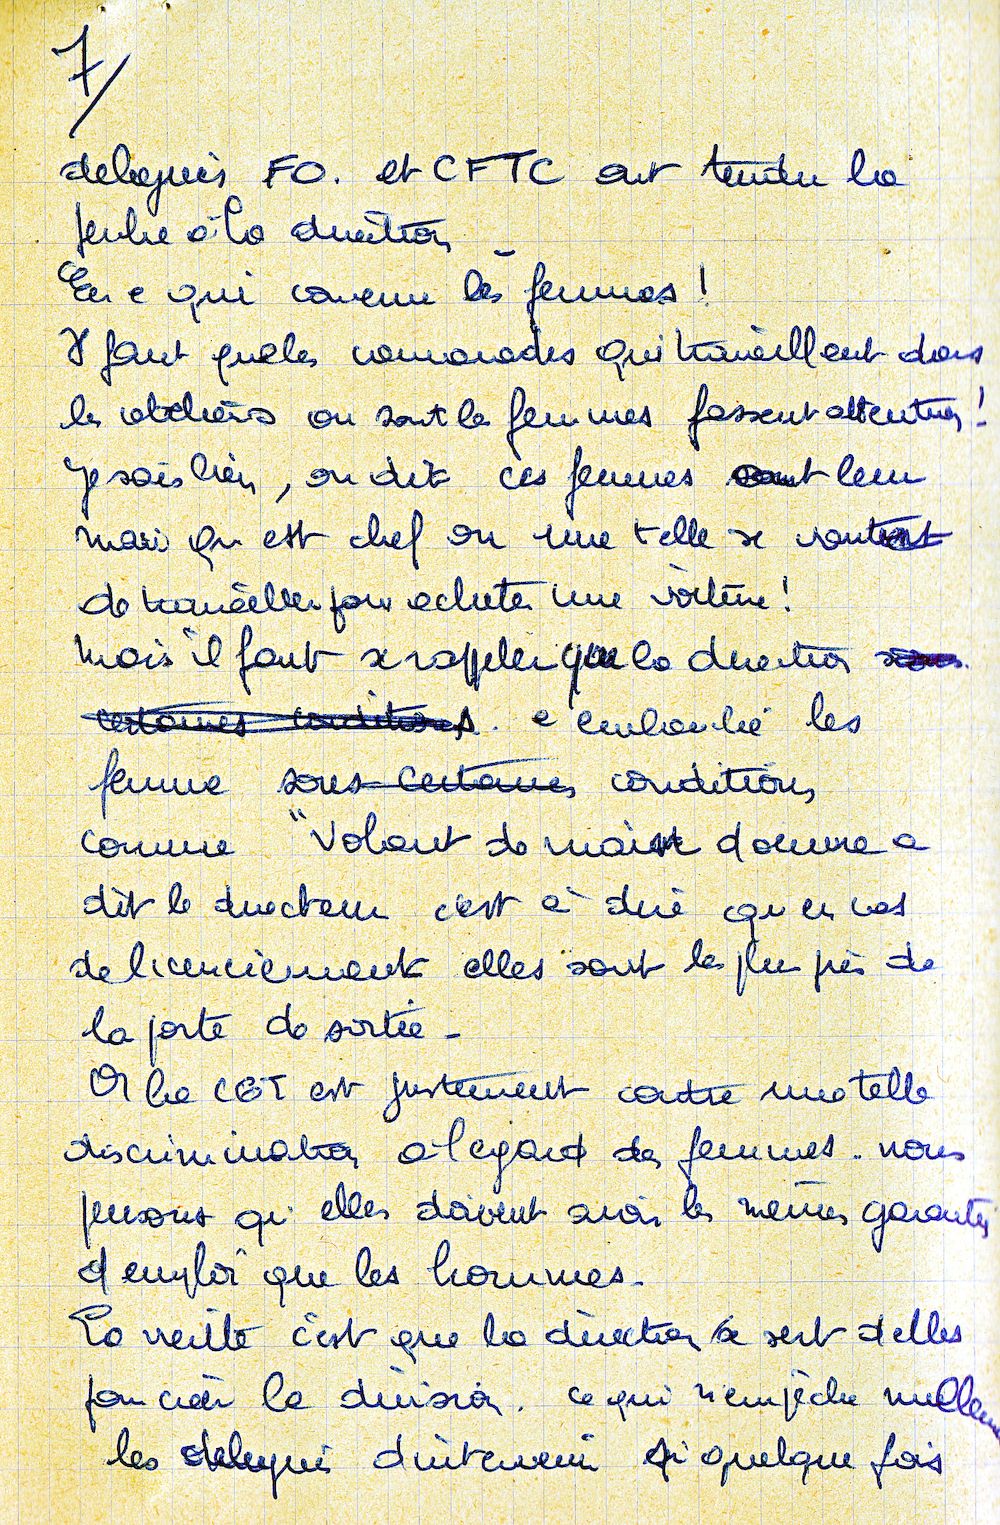 7/
delegués FO. et CFTC ont tendu la
perche à la direction
En ce qui concerne les femmes !
Il faut que les camarades qui travaillent dans
les ateliers ou sont les femmes fassent attention !
Je sais bien, on dit ces femmes ont leur
mari qu est chef ou une telle se vante
de travailler pour acheter une voiture !
mais il faut se rappeler que la direction sous
certaines conditions. a embauché les
femme sous certaines conditions
comme "Volant de main d'oeuvre a
dit le directeur c'est à dire qu en cas
de licenciement elles sont le plus près de
la porte de sortie -
Or la CGT est justement contre une telle
discrimination a l'egard des femmes. nous
pensons qu' elles doivent avoir les mêmes garanties
d'emploi que les hommes.
La verité c'est que la direction se sert d'elles
pour créer la division. ce qui n'empêche nullement
les delegués d'intervenir si quelque fois